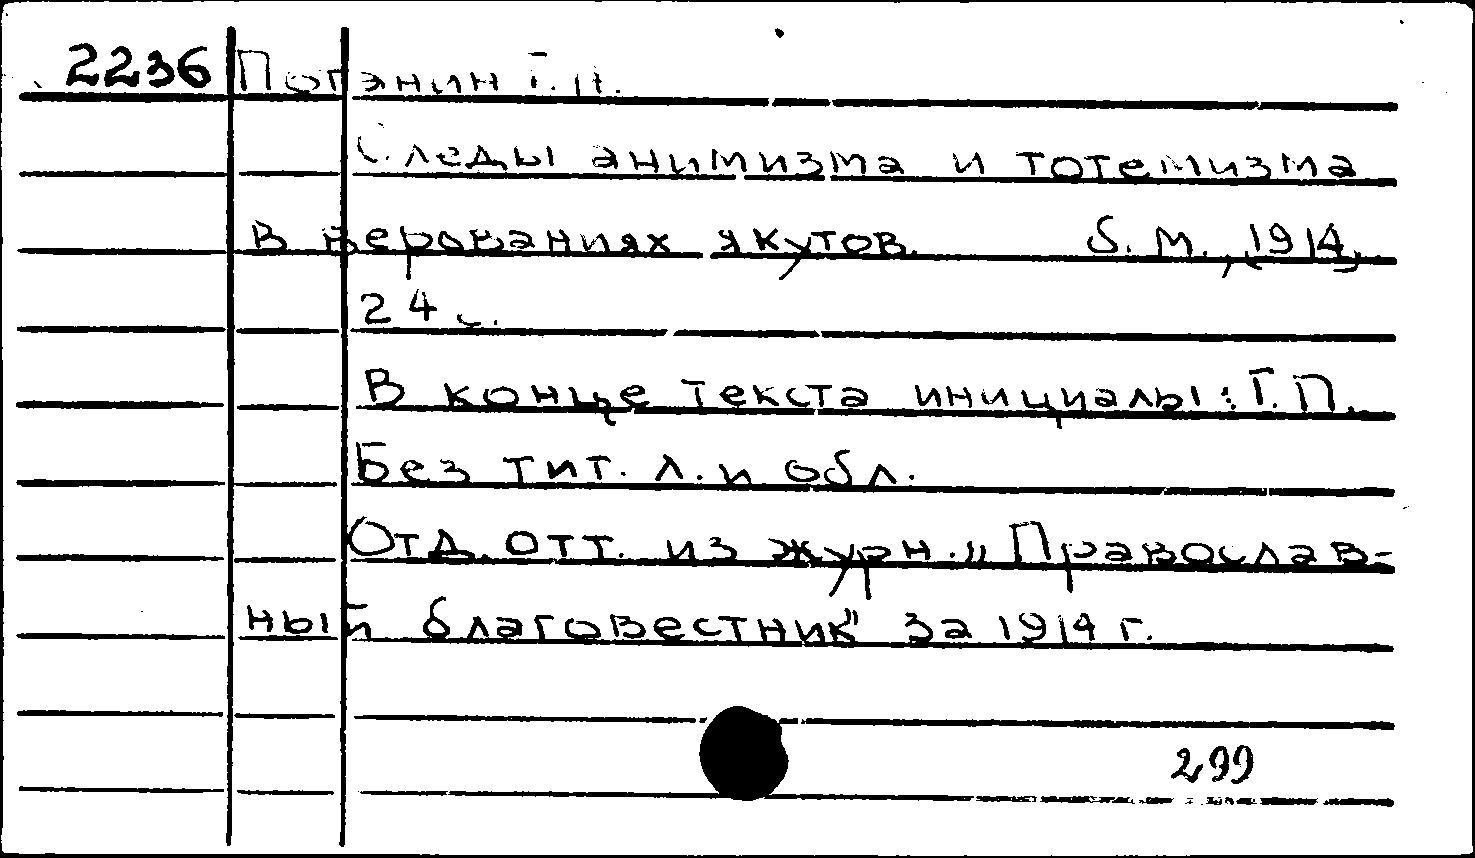 2236 Потанин Г.Н.
Следы анимизма и тотемизма
в верованиях якутов. б. м., (1914).
24 с.
В конце текста инициалы: Г.П.
Без тит. л. и обл.
Отд. отт. из журн. „Православ-
ный благовестник" за 1914 г.
299